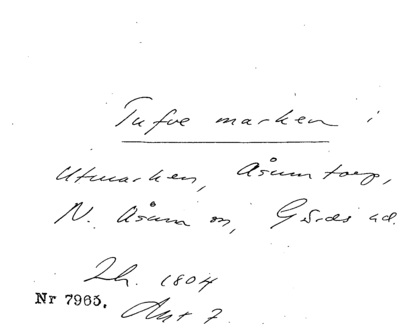 Tufve marken i
Utmarken, Åsum torp,
N. Åsum sn, Gärds hd.
Lh. 1804
Nr 7965. Akt 7